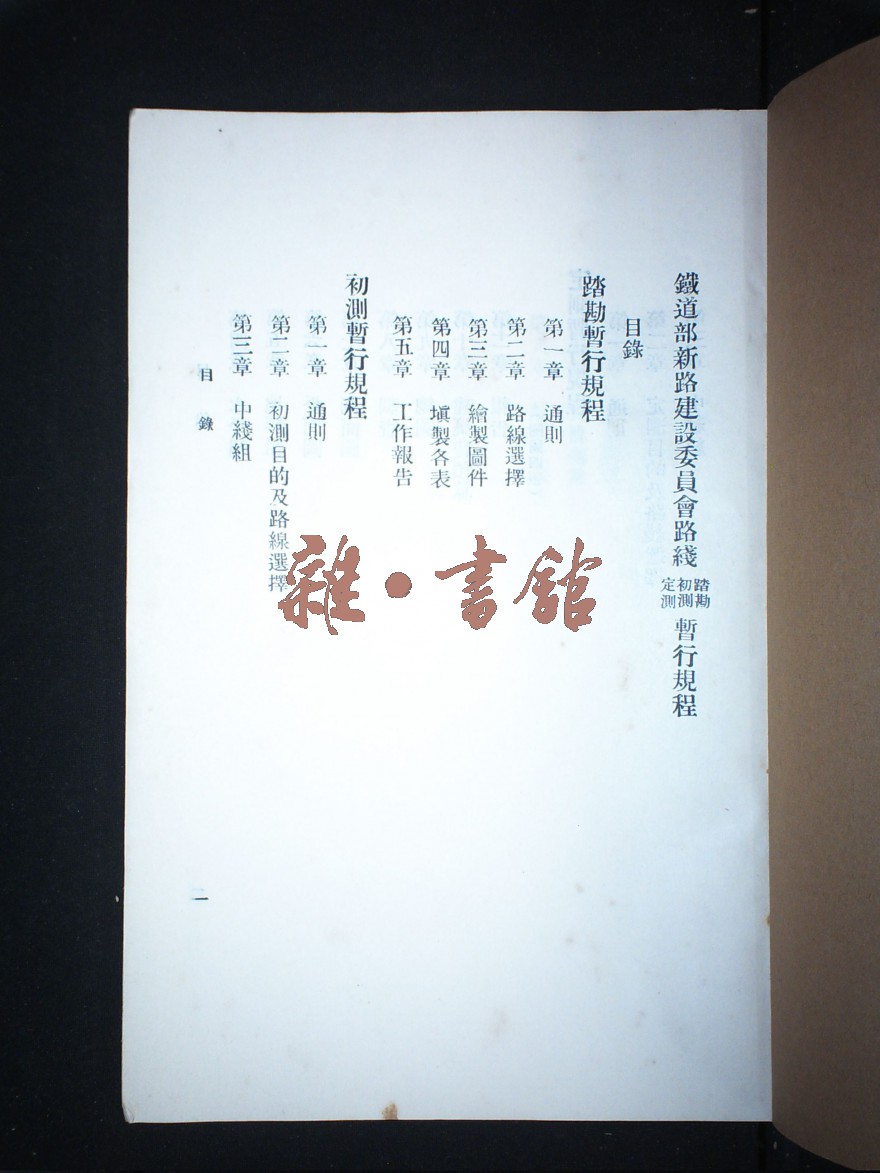 鐵道部新路建設委員會路綫踏勘初測定測暫行規程
目錄
踏勘暫行規程
第一章 通則
第二章 路線選擇
第三章 繪製圖件
第四章 塡製各表
第五章 工作報告
初測暫行規程
第一章 通則
第二章 初測目的及路線選擇
第三章 中綫組
目錄
二
雜·書館